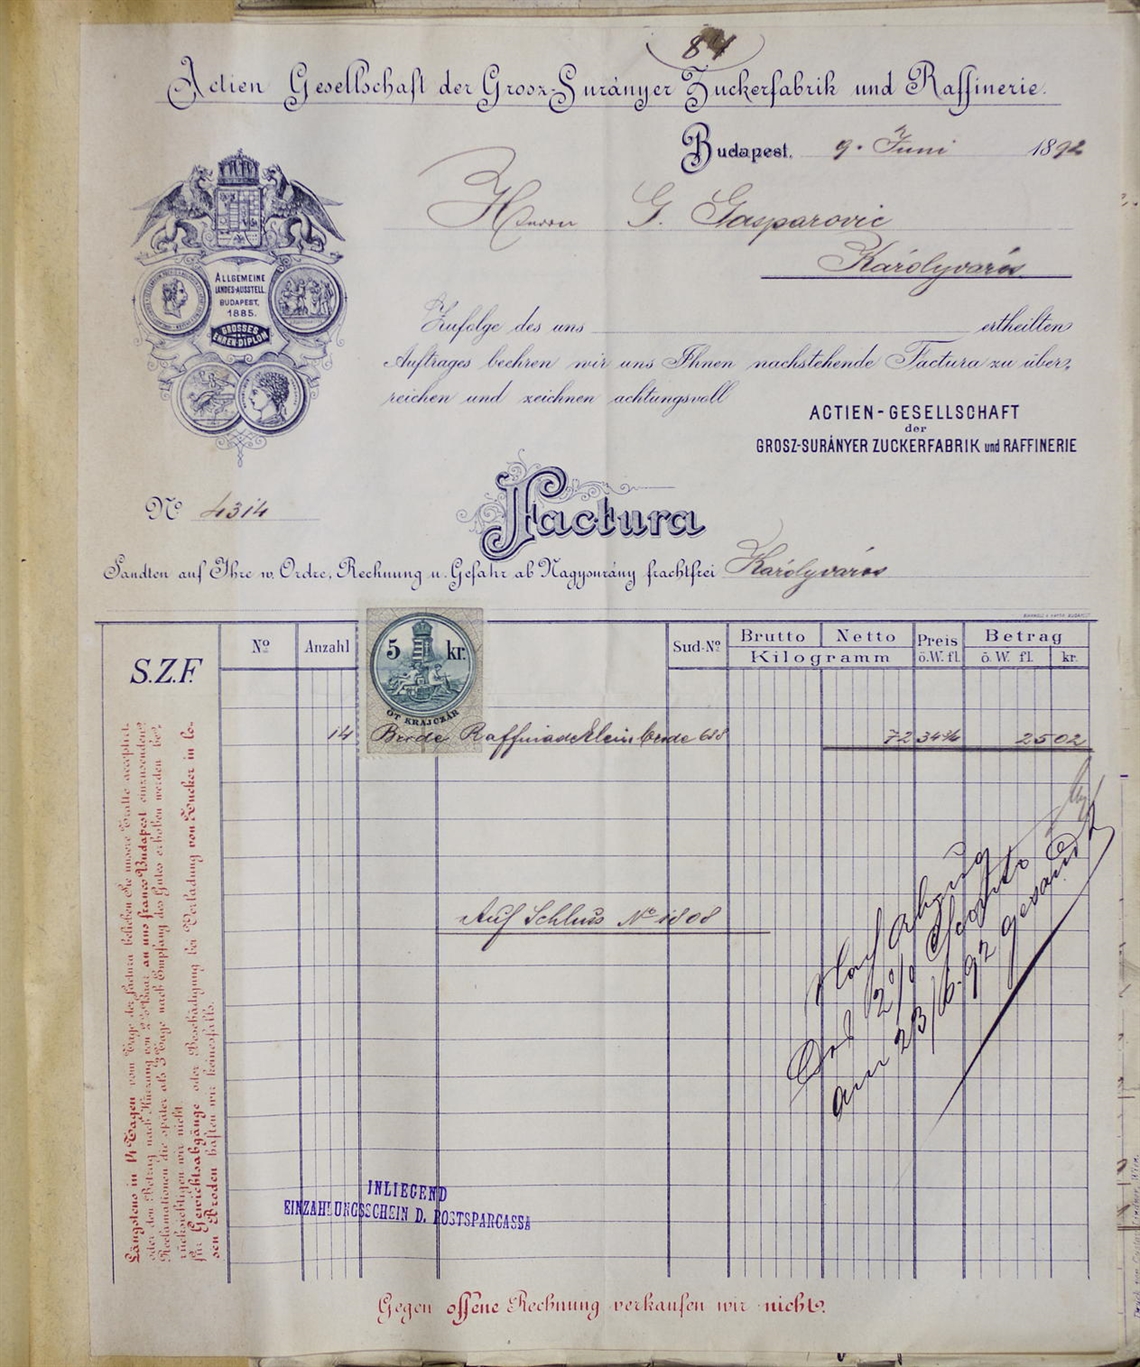 84
Actien Gesellschaft der Grosz-Surányer Zuckerfabrik und Raffinerie.
Budapest, 9. Juni 1892
Herrn G. Gasparovic
Károlyváros
ALLGEMEINE
LANDES-AUSSTELL.
BUDAPEST,
1885.
GROSSES
EHREN-DIPLOM
Zufolge des uns ertheilten
Auftrages beehren wir uns Ihnen nachstehende Factura zu über-
reichen und zeichnen achtungsvoll
ACTIEN-GESELLSCHAFT
der
GROSZ-SURÁNYER ZUCKERFABRIK und RAFFINERIE
No 4314
Factura
Sandten auf Ihre w. Ordre, Rechnung u. Gefahr ab Nagysurány frachtfrei Károlyváros
S.Z.F.
No Anzahl Sud-No Brutto Netto Preis Betrag
Kilogramm ö.W. fl. ö. W. fl. kr.
5 kr.
ÖT KRAJCZÁR
14 Brode Raffinade 688 72 34¾ 25 02
Auf Schluss No 1808
Nach Abzug
von 2% Sconto
am 23/6.92 gesandt
Längstens in 14 Tagen vom Tage der Factura belieben Sie unsere Tratte acceptirt
oder den Betrag nach Kürzung von 2% Baar an uns franco Budapest einzusenden.
Reclamationen die später als 3 Tage nach Empfang des Gutes erhoben werden be-
rücksichtigen wir nicht.
für Gewichtsabgänge oder Beschädigung bei Verladung von Zucker in lo-
sen Broden haften wir keinesfalls.
INLIEGEND
EINZAHLUNGSSCHEIN D. POSTSPARCASSA
Gegen offene Rechnung verkaufen wir nicht.